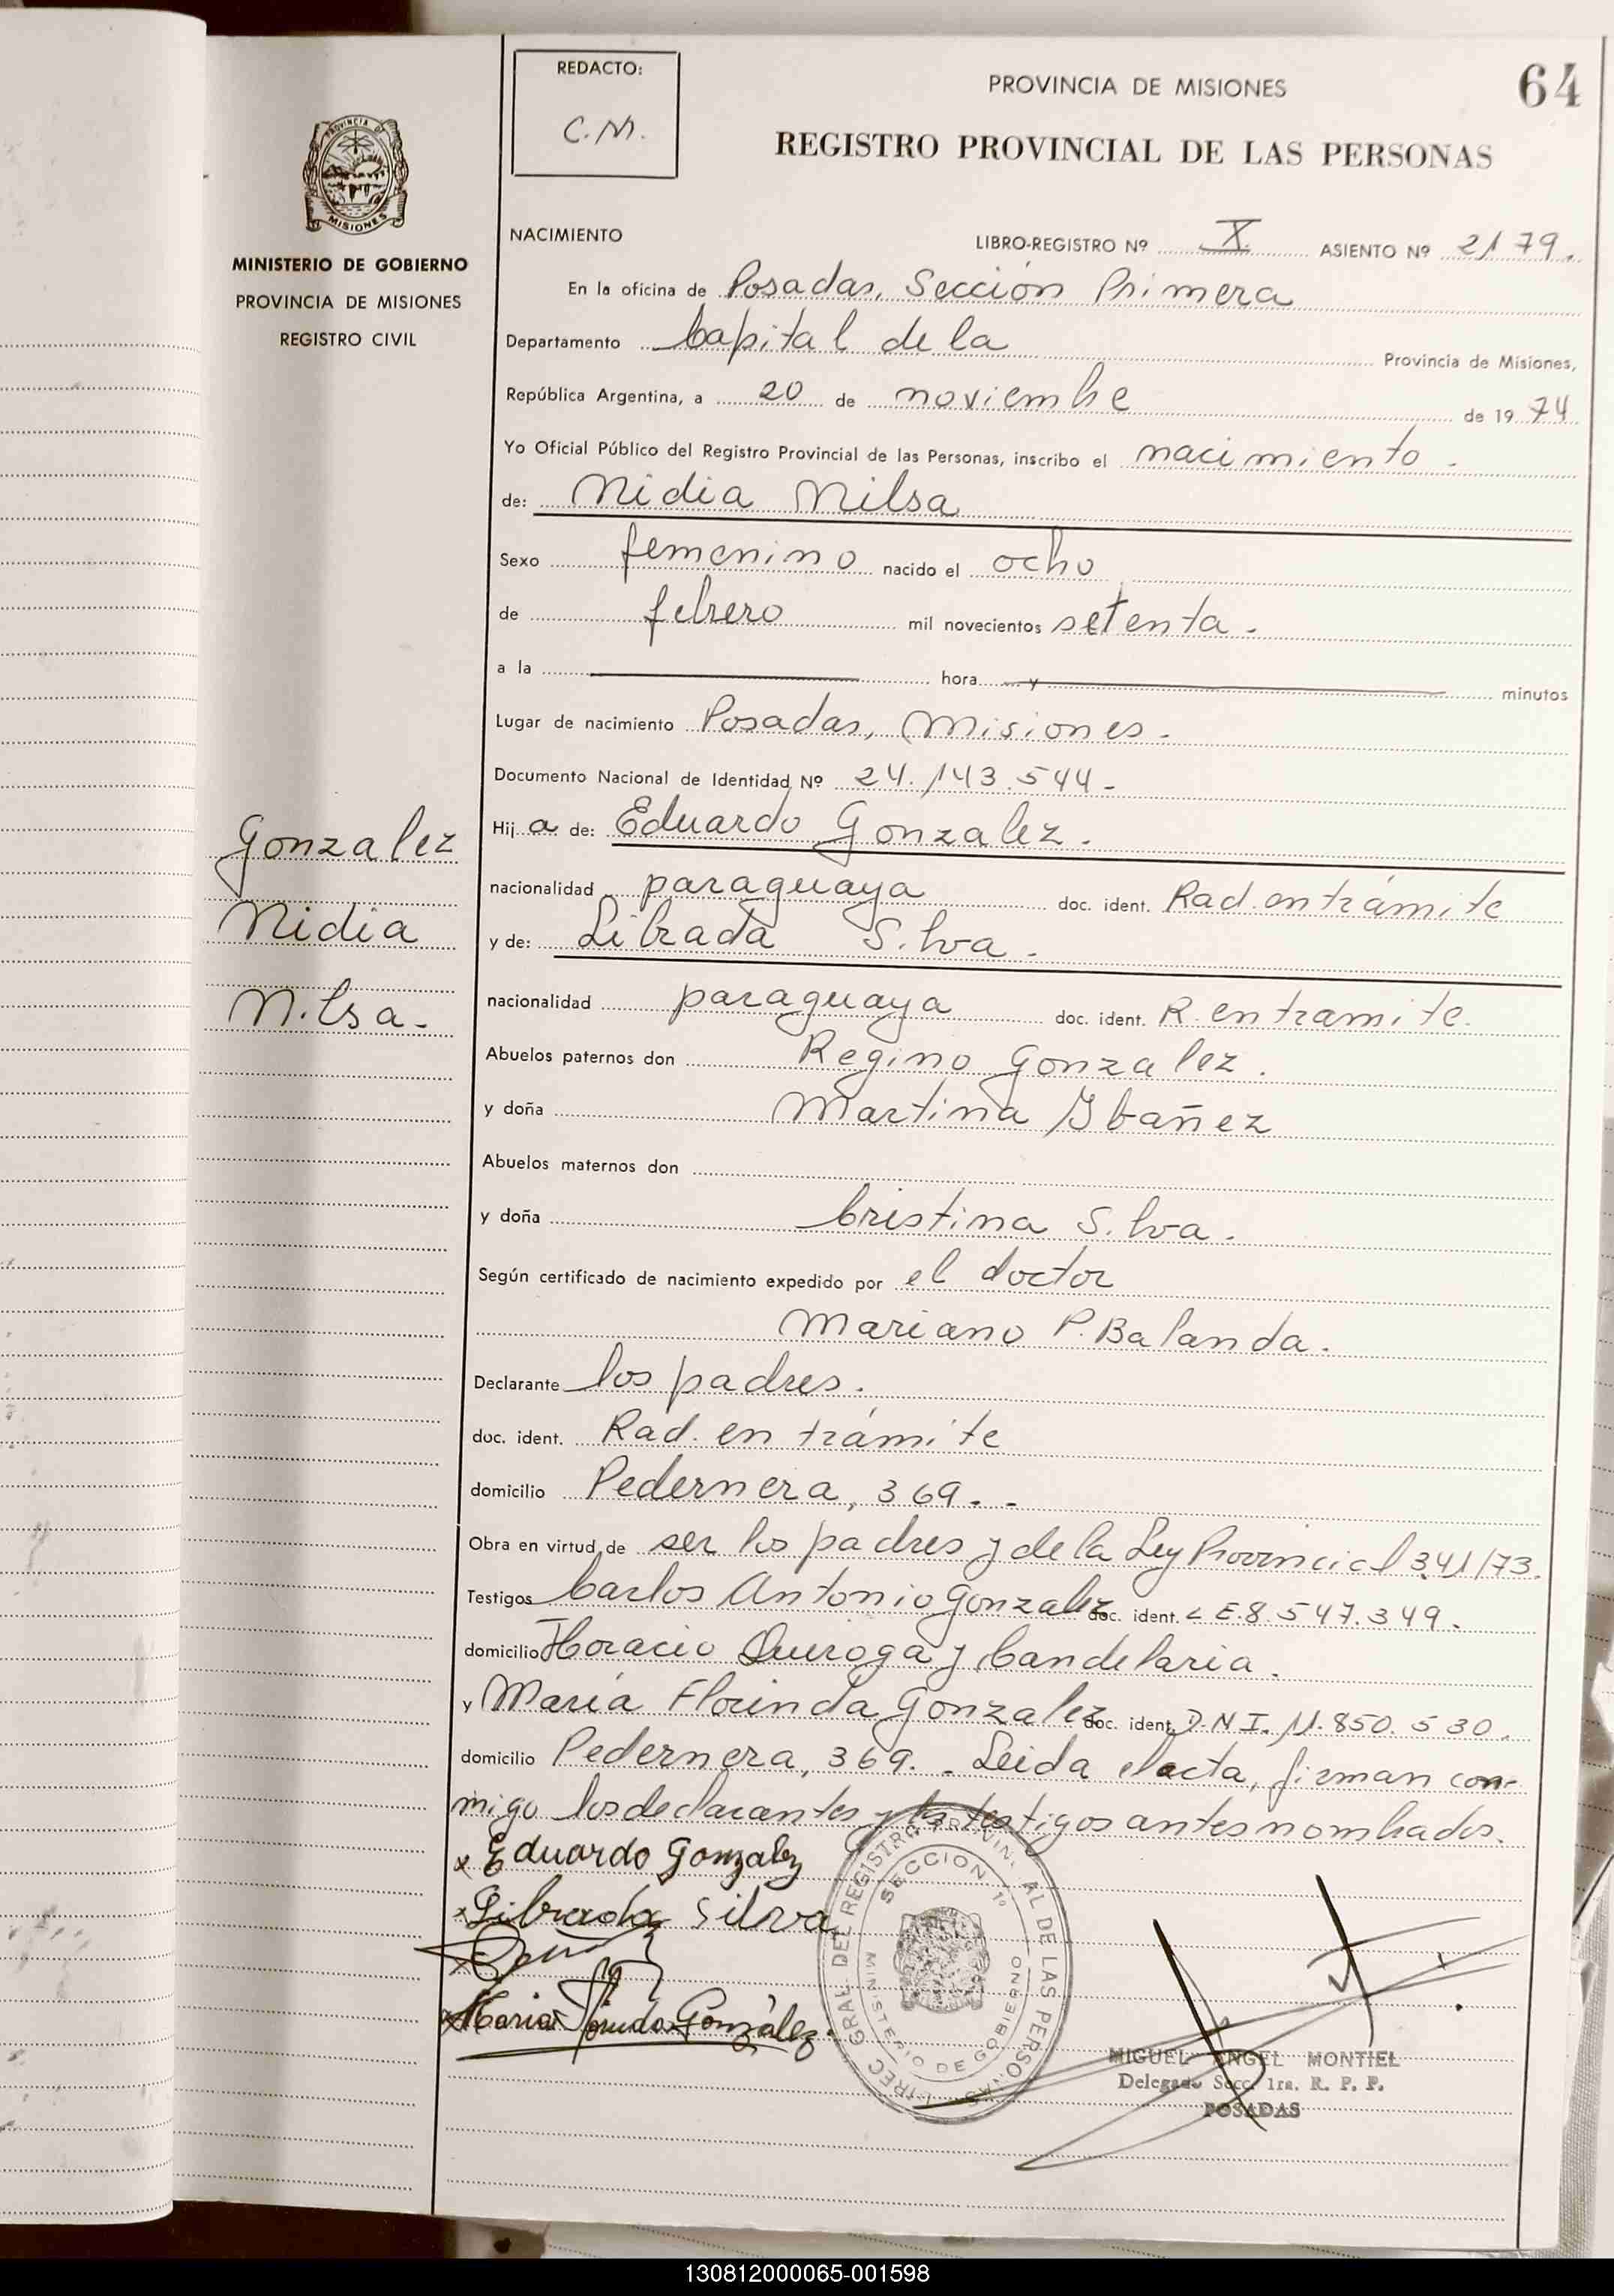 REDACTO:
C.M.
PROVINCIA DE MISIONES
64
REGISTRO PROVINCIAL DE LAS PERSONAS
PROVINCIA DE
MISIONES
MINISTERIO DE GOBIERNO
PROVINCIA DE MISIONES
REGISTRO CIVIL
NACIMIENTO
LIBRO-REGISTRO Nº X ASIENTO Nº 2179.
En la oficina de Posadas, Sección Primera
Departamento Capital de la Provincia de Misiones,
República Argentina, a 20 de noviembre de 1974
Yo Oficial Público del Registro Provincial de las Personas, inscribo el nacimiento.
de: Nidia Nilsa
Sexo femenino nacido el ocho
de febrero mil novecientos setenta.
a la hora y minutos
Lugar de nacimiento Posadas, Misiones.
Documento Nacional de Identidad Nº 24.143.544-
Hij a de: Eduardo Gonzalez.
nacionalidad paraguaya doc. ident. Rad. en trámite
y de: Librada Silva.
nacionalidad paraguaya doc. ident. R. en tramite.
Abuelos paternos don Regino Gonzalez.
y doña Martina Ybañez
Abuelos maternos don
y doña Cristina Silva.
Según certificado de nacimiento expedido por el doctor
Mariano P. Balanda.
Declarante los padres.
doc. ident. Rad. en trámite
domicilio Pedernera, 369.-
Obra en virtud de ser los padres y de la Ley Provincial 341/73.
Testigos Carlos Antonio Gonzalez doc. ident. L E. 8.547.349.
domicilio Horacio Quiroga y Candelaria.
y María Florinda Gonzalez doc. ident. D.N.I. 11.850.530.
domicilio Pedernera, 369.- Leida el acta, firman con-
migo los declarantes y los testigos antes nombrados.
Gonzalez
Nidia
Nilsa-
x Eduardo Gonzalez
x Librada Silva
x Maria Florinda González.
DIREC. GRAL. DEL REGISTRO PROVINCIAL DE LAS PERSONAS
SECCION 1º
MINISTERIO DE GOBIERNO
MIGUEL ANGEL MONTIEL
Delegado Secc. 1ra. R. P. P.
POSADAS
130812000065-001598